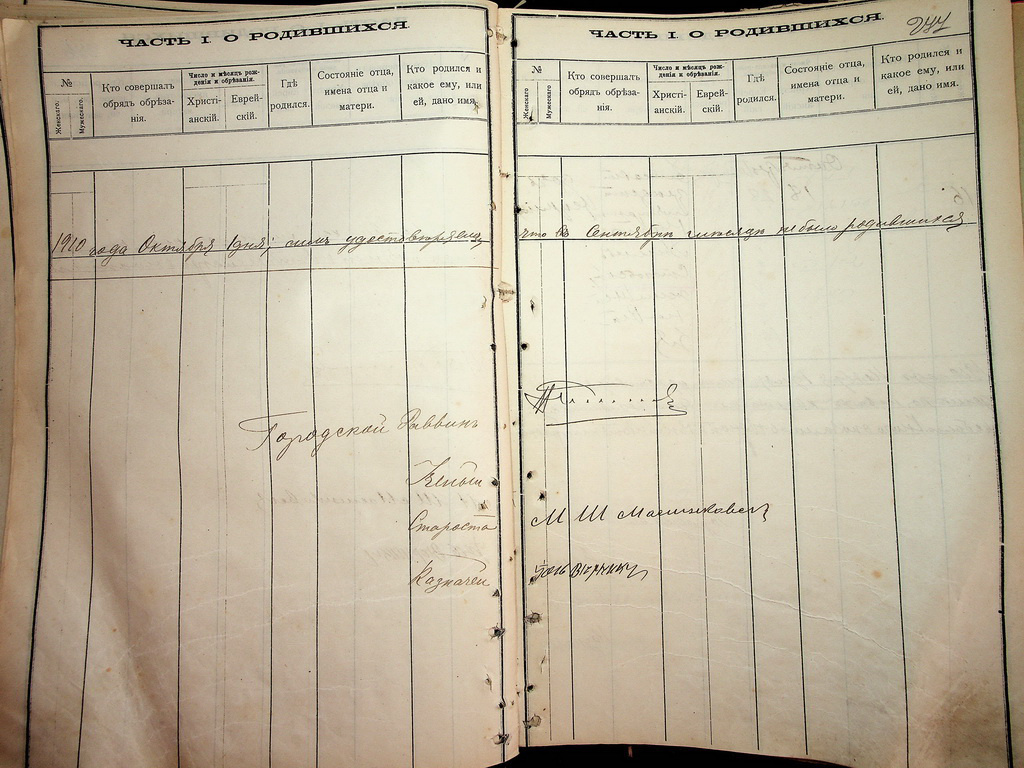 ЧАСТЬ I. О РОДИВШИХСЯ.
№
Женскаго.
Мужескаго.
Кто совершалъ обрядъ обрѣзанія.
Число и мѣсяцъ рожденія и обрѣзанія.
Христіанскій.
Еврейскій.
Гдѣ родился.
Состояніе отца, имена отца и матери.
Кто родился и какое ему, или ей, дано имя.
ЧАСТЬ I. О РОДИВШИХСЯ.
№
Женскаго.
Мужескаго.
Кто совершалъ обрядъ обрѣзанія.
Число и мѣсяцъ рожденія и обрѣзанія.
Христіанскій.
Еврейскій.
Гдѣ родился.
Состояніе отца, имена отца и матери.
Кто родился и какое ему, или ей, дано имя.
1910 года Октября 1 дня; симъ удостовѣряемъ что въ Сентябрѣ мѣсяцѣ не было родившихся
Городской Раввинъ
Члены
Староста М Ш
Казначей